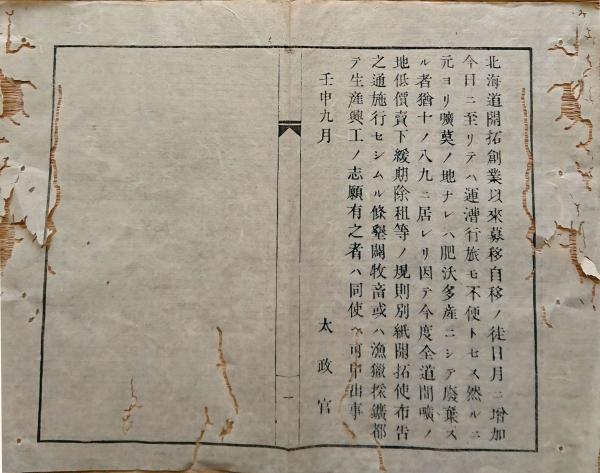 北海道開拓創業以來募移自移ノ徒日月ニ增加
今日ニ至リテハ運漕行旅モ不便トセス然ルニ
元ヨリ曠莫ノ地ナレハ肥沃多產ニシテ廢棄ス
ル者猶十ノ八九ニ居レリ因テ今度全道閒曠ノ
地低價賣下緩期除租等ノ規則別紙開拓使布告
之通施行セシムル條墾闢牧畜或ハ漁獵採鑛都
テ生產興工ノ志願有之者ハ同使ヘ可申出事
壬申九月
太政官
一